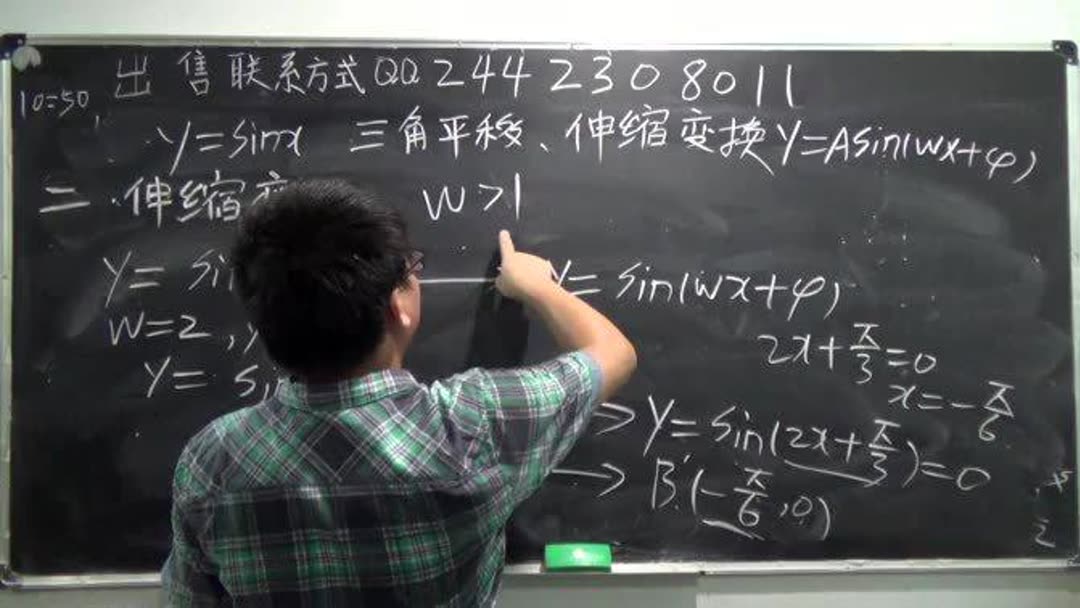 出售联系方式QQ2442308011
10=50,
y=sinx 三角平移、伸缩变换y=Asin(wx+φ)
二.伸缩变 w>1
y= si y=sin(wx+φ)
w=2, 2x+π/3=0
y= si x=-π/6
→ y=sin(2x+π/3)=0
→ B'(-π/6,0)